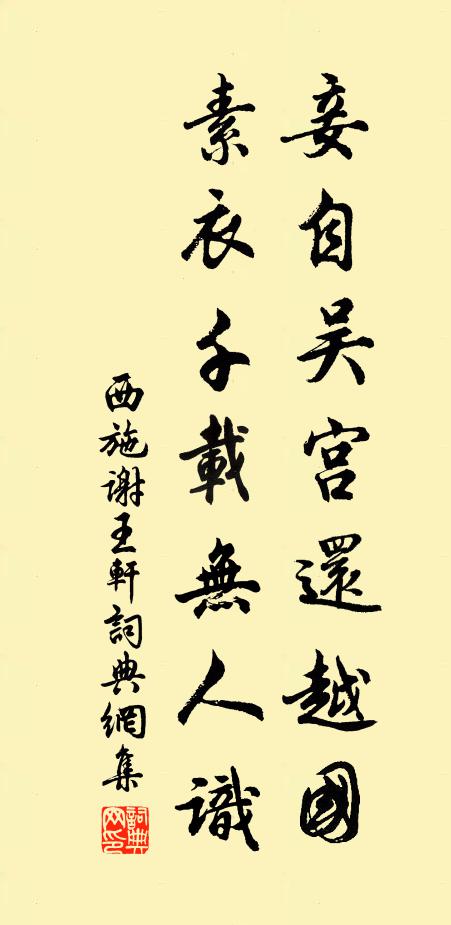 妾自吴宫還越國
素衣千載無人識
西施謝王軒詞典網集
詞典网印